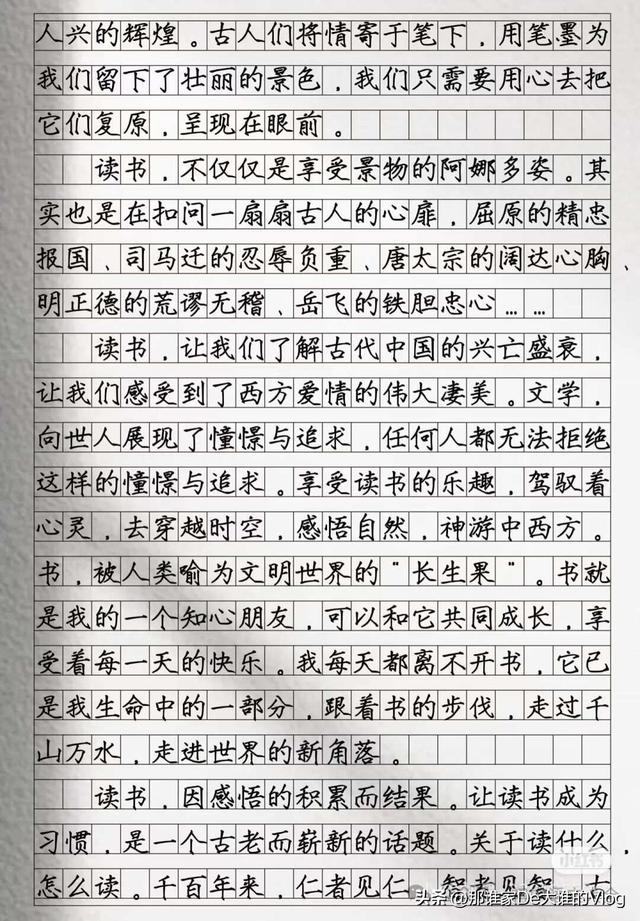 人兴的辉煌。古人们将情寄于笔下，用笔墨为
我们留下了壮丽的景色，我们只需要用心去把
它们复原，呈现在眼前。
读书，不仅仅是享受景物的阿娜多姿。其
实也是在扣问一扇扇古人的心扉，屈原的精忠
报国、司马迁的忍辱负重、唐太宗的阔达心胸、
明正德的荒谬无稽、岳飞的铁胆忠心……
读书，让我们了解古代中国的兴亡盛衰，
让我们感受到了西方爱情的伟大凄美。文学，
向世人展现了憧憬与追求，任何人都无法拒绝
这样的憧憬与追求。享受读书的乐趣，驾驭着
心灵，去穿越时空，感悟自然，神游中西方。
书，被人类喻为文明世界的“长生果”。书就
是我的一个知心朋友，可以和它共同成长，享
受着每一天的快乐。我每天都离不开书，它已
是我生命中的一部分，跟着书的步伐，走过千
山万水，走进世界的新角落。
读书，因感悟的积累而结果。让读书成为
习惯，是一个古老而崭新的话题。关于读什么，
怎么读。千百年来，仁者见仁，智者见智，古
小红书
头条@那谁家De大雅的Vlog